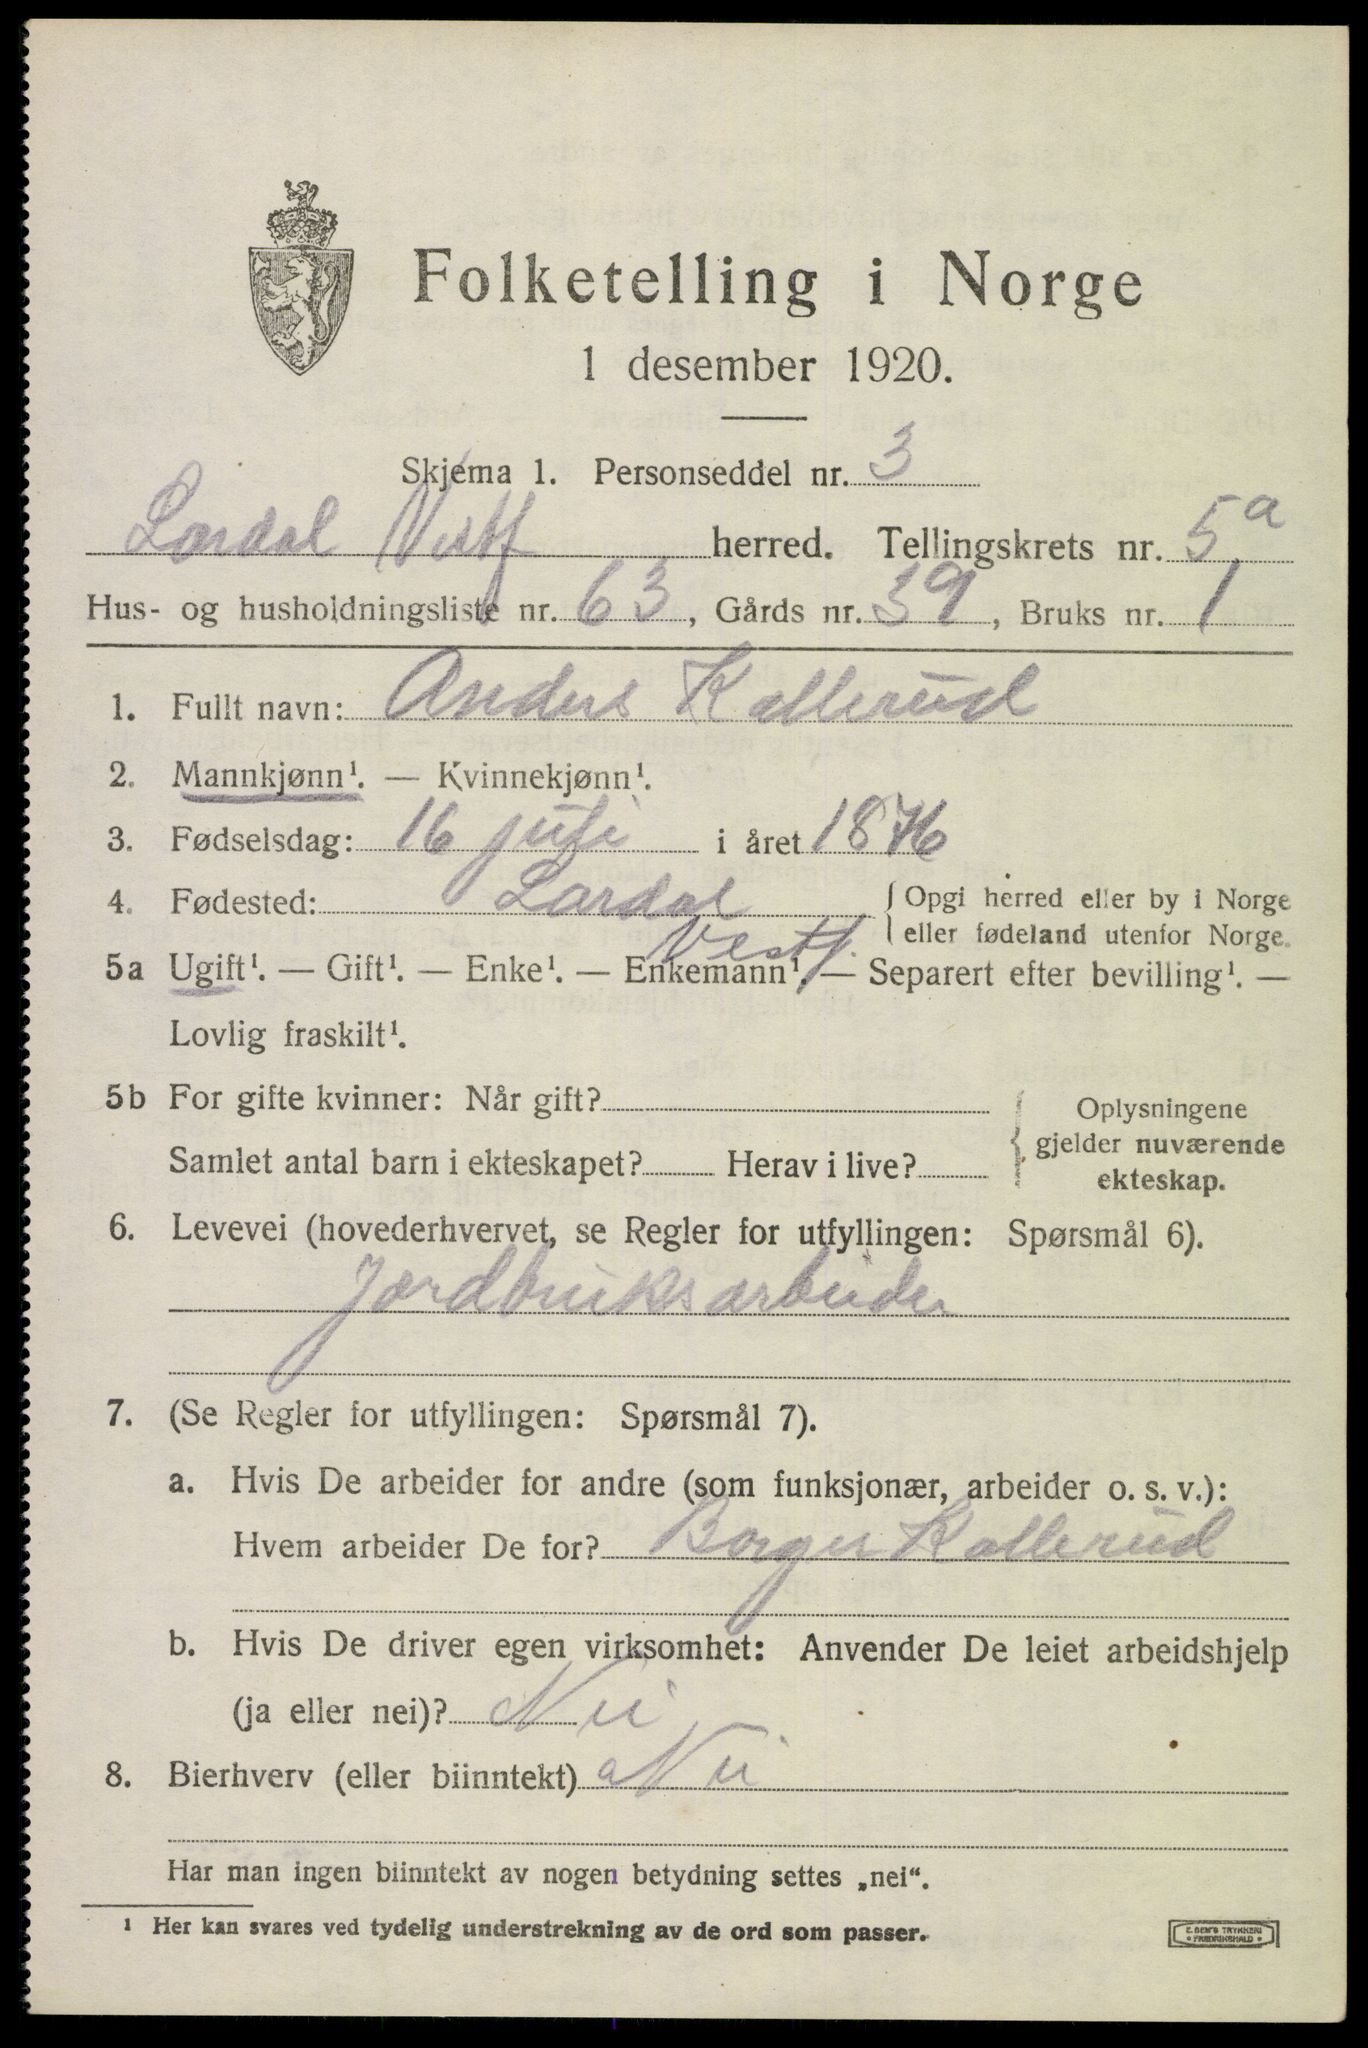 Folketelling i Norge
1 desember 1920.
Skjema 1. Personseddel nr. 3
Lardal Vestf herred. Tellingskrets nr. 5a
Hus- og husholdningsliste nr. 63, Gårds nr. 39, Bruks nr. 1
1. Fullt navn: Anders Kallerud
2. Mannkjønn¹. — Kvinnekjønn¹.
3. Fødselsdag: 16 juli i året 1876
4. Fødested: Lardal Vestf. { Opgi herred eller by i Norge
eller fødeland utenfor Norge.
5a Ugift¹. — Gift¹. — Enke¹. — Enkemann¹. — Separert efter bevilling¹. —
Lovlig fraskilt¹.
5b For gifte kvinner: Når gift? { Oplysningene
gjelder nuværende
Samlet antal barn i ekteskapet? Herav i live? ekteskap.
6. Levevei (hovederhvervet, se Regler for utfyllingen: Spørsmål 6).
Jordbruksarbeider
7. (Se Regler for utfyllingen: Spørsmål 7).
a. Hvis De arbeider for andre (som funksjonær, arbeider o. s. v.):
Hvem arbeider De for? Borger Kallerud
b. Hvis De driver egen virksomhet: Anvender De leiet arbeidshjelp
(ja eller nei)? Nei
8. Bierhverv (eller biinntekt) Nei
Har man ingen biinntekt av nogen betydning settes „nei“.
¹ Her kan svares ved tydelig understrekning av de ord som passer.
E. SEM'S TRYKKERI
• FREDRIKSHALD •